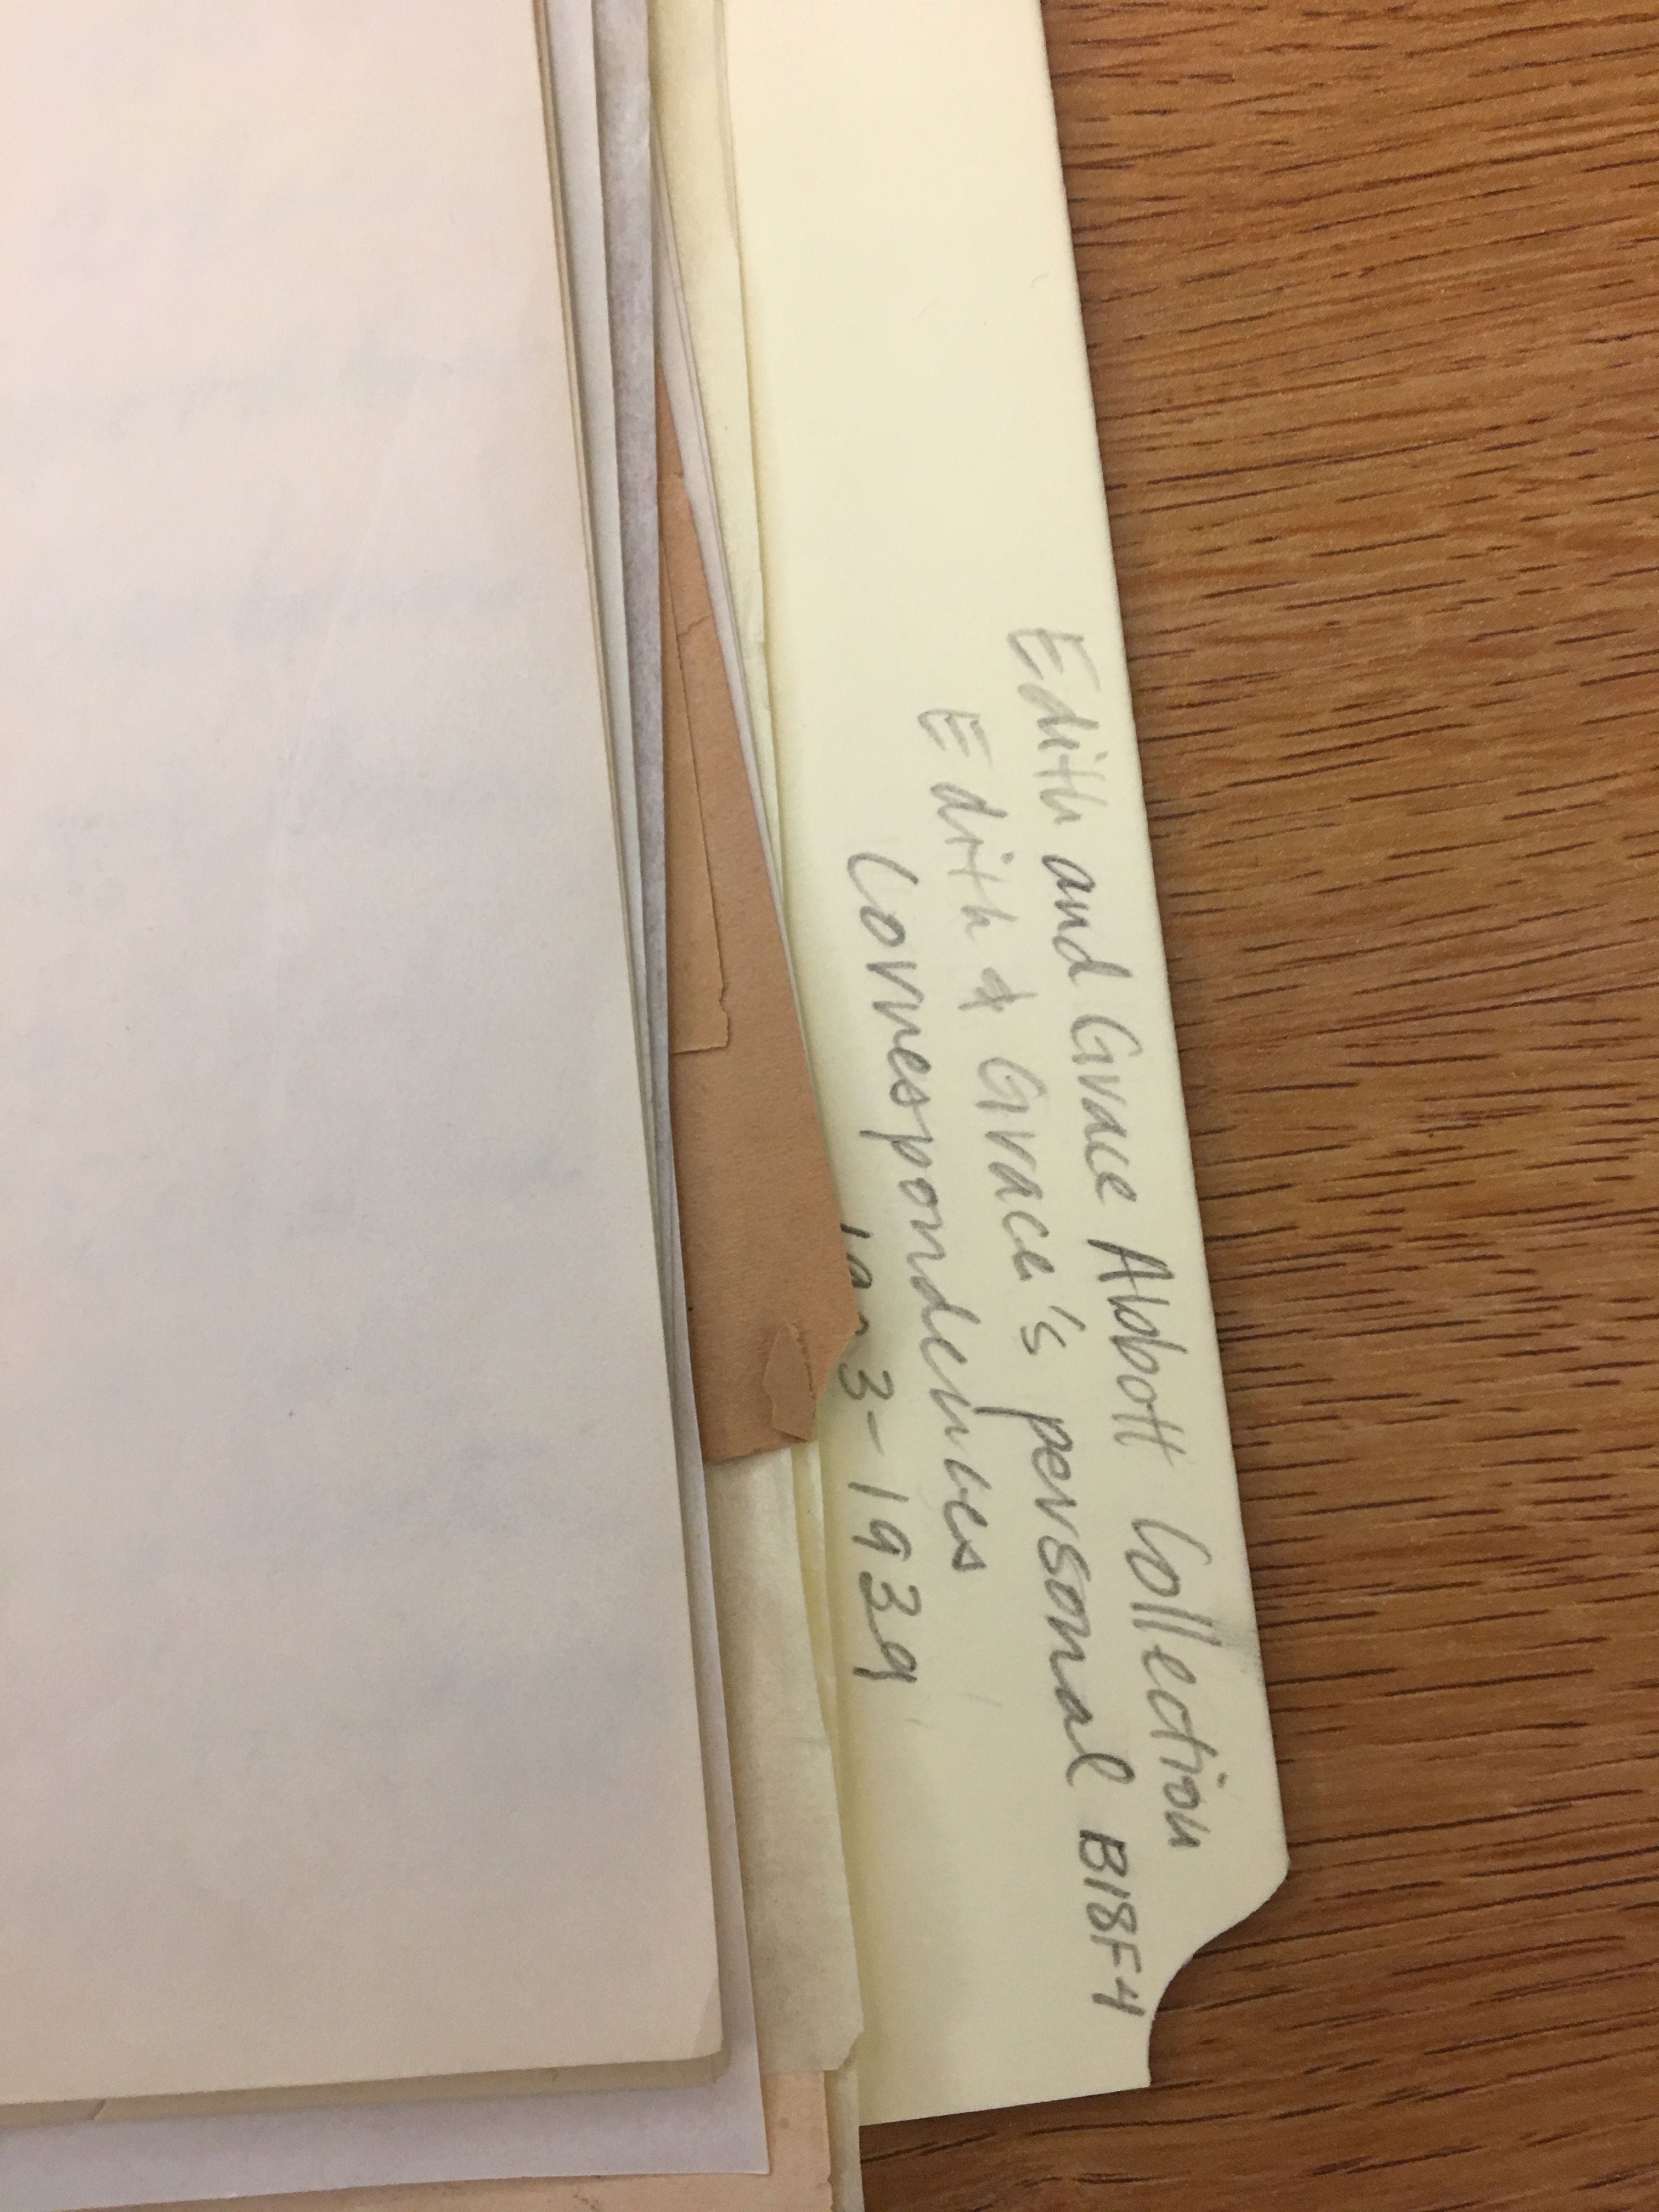 Edith and Grace Abbott Collection
Edith & Grace's personal B18F4
Correspondences
1903-1939